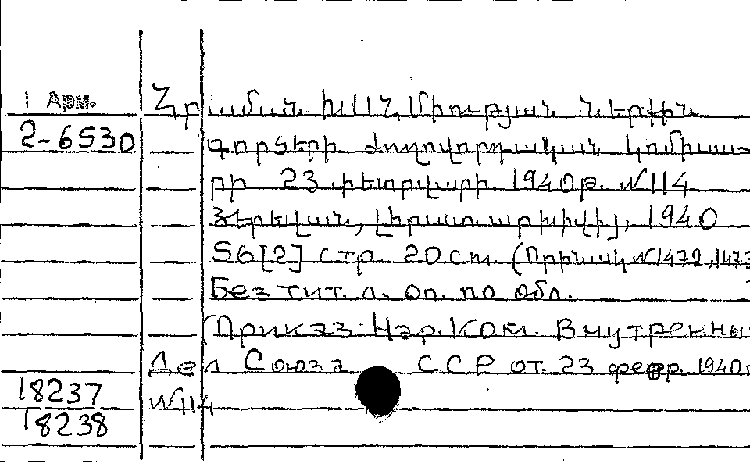 Арм.
2-6530
Հրաման ԽՍՀ Միության Ներքին
գործերի Ժողովորդական Կոմիսա-
րի 23 փետրվարի 1940թ. №114
Երեվան, 1940
56[2] стр. 20 cm. (Օրինակ №1472, 1473
Без тит. л. оп. по обл.
(Приказ Нар. Ком. Внутренны
Дел Союза ССР от. 23 февр. 1940
№114
18237
18238